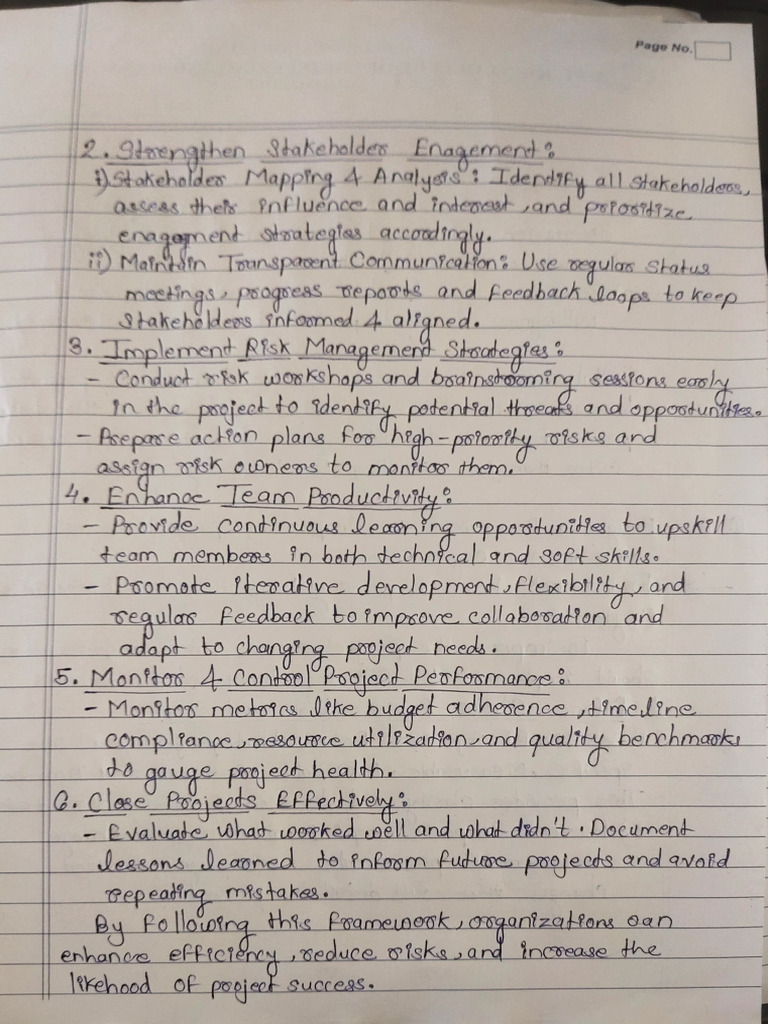 Page No.
2. Strengthen Stakeholder Enagement:
i) Stakeholder Mapping & Analysis: Identify all stakeholders,
assess their influence and interest, and prioritize
enagement strategies accordingly.
ii) Maintain Transparent Communication: Use regular status
meetings, progress reports and feedback loops to keep
stakeholders informed & aligned.
3. Implement Risk Management Strategies:
- Conduct risk workshops and brainstroming sessions early
in the project to identify potential threats and opportunities.
- Prepare action plans for high-priority risks and
assign risk owners to monitor them.
4. Enhance Team Productivity:
- Provide continuous learning opportunities to upskill
team members in both technical and soft skills.
- Promote iterative development, flexibility, and
regular feedback to improve collaboration and
adapt to changing project needs.
5. Monitor & Control Project Performance:
- Monitor metrics like budget adherence, timeline
compliance, resource utilization, and quality benchmarks
to gauge project health.
6. Close Projects Effectively:
- Evaluate what worked well and what didn't. Document
lessons learned to inform future projects and avoid
repeating mistakes.
By following this framework, organizations can
enhance efficiency, reduce risks, and increase the
likehood of project success.